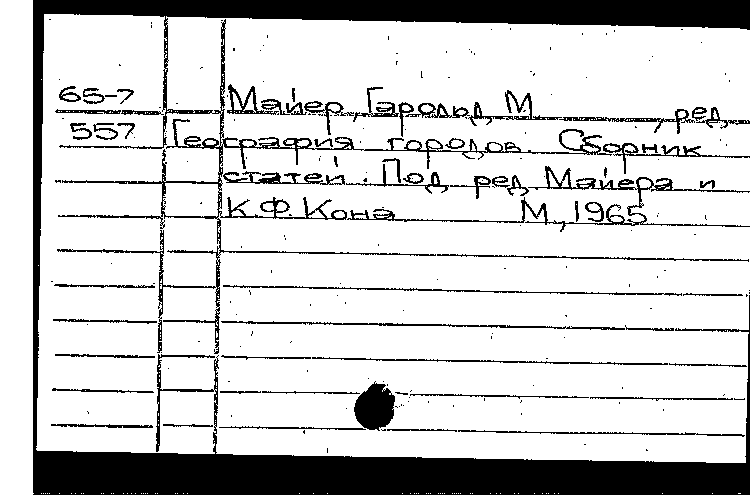 65-7 Майер, Гарольд М , ред.
557 География городов. Сборник
статей. Под ред. Майера и
К.Ф. Кона М., 1965